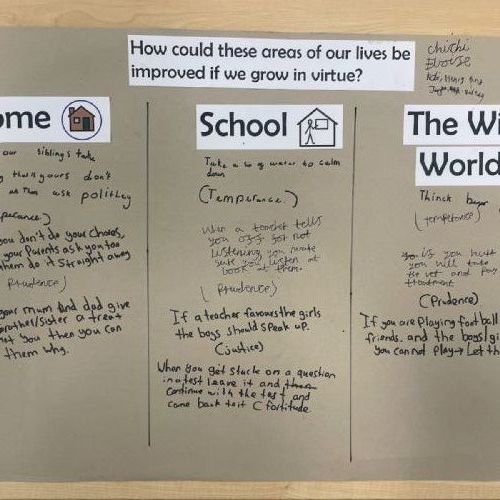 How could these areas of our lives be
improved if we grow in virtue?
chichi
Eloise
ome
our siblings take
yours don't
ask politley
perance)
you don't do your chores,
your parents ask you too
them do it straight away
Prudence)
your mum and dad give
brother/sister a treat
not you then you can
them why.
School
Take a sip of water to calm
down
(Temperance)
When a teacher tells
you off for not
listening you make
sure you listen at
book at them.
(Prudence)
If a teacher favours the girls
the boys should speak up.
(justice)
When you get stuck on a question
in a test leave it and then
Continue with the test and
come back to it (fortitude
The Wi
World
Thinck
(temperance)
if you hurt
you will take
the vet and pay
treatment
(Prudence)
If you are playing football
friends. and the boys/gi
you can not play → Let th